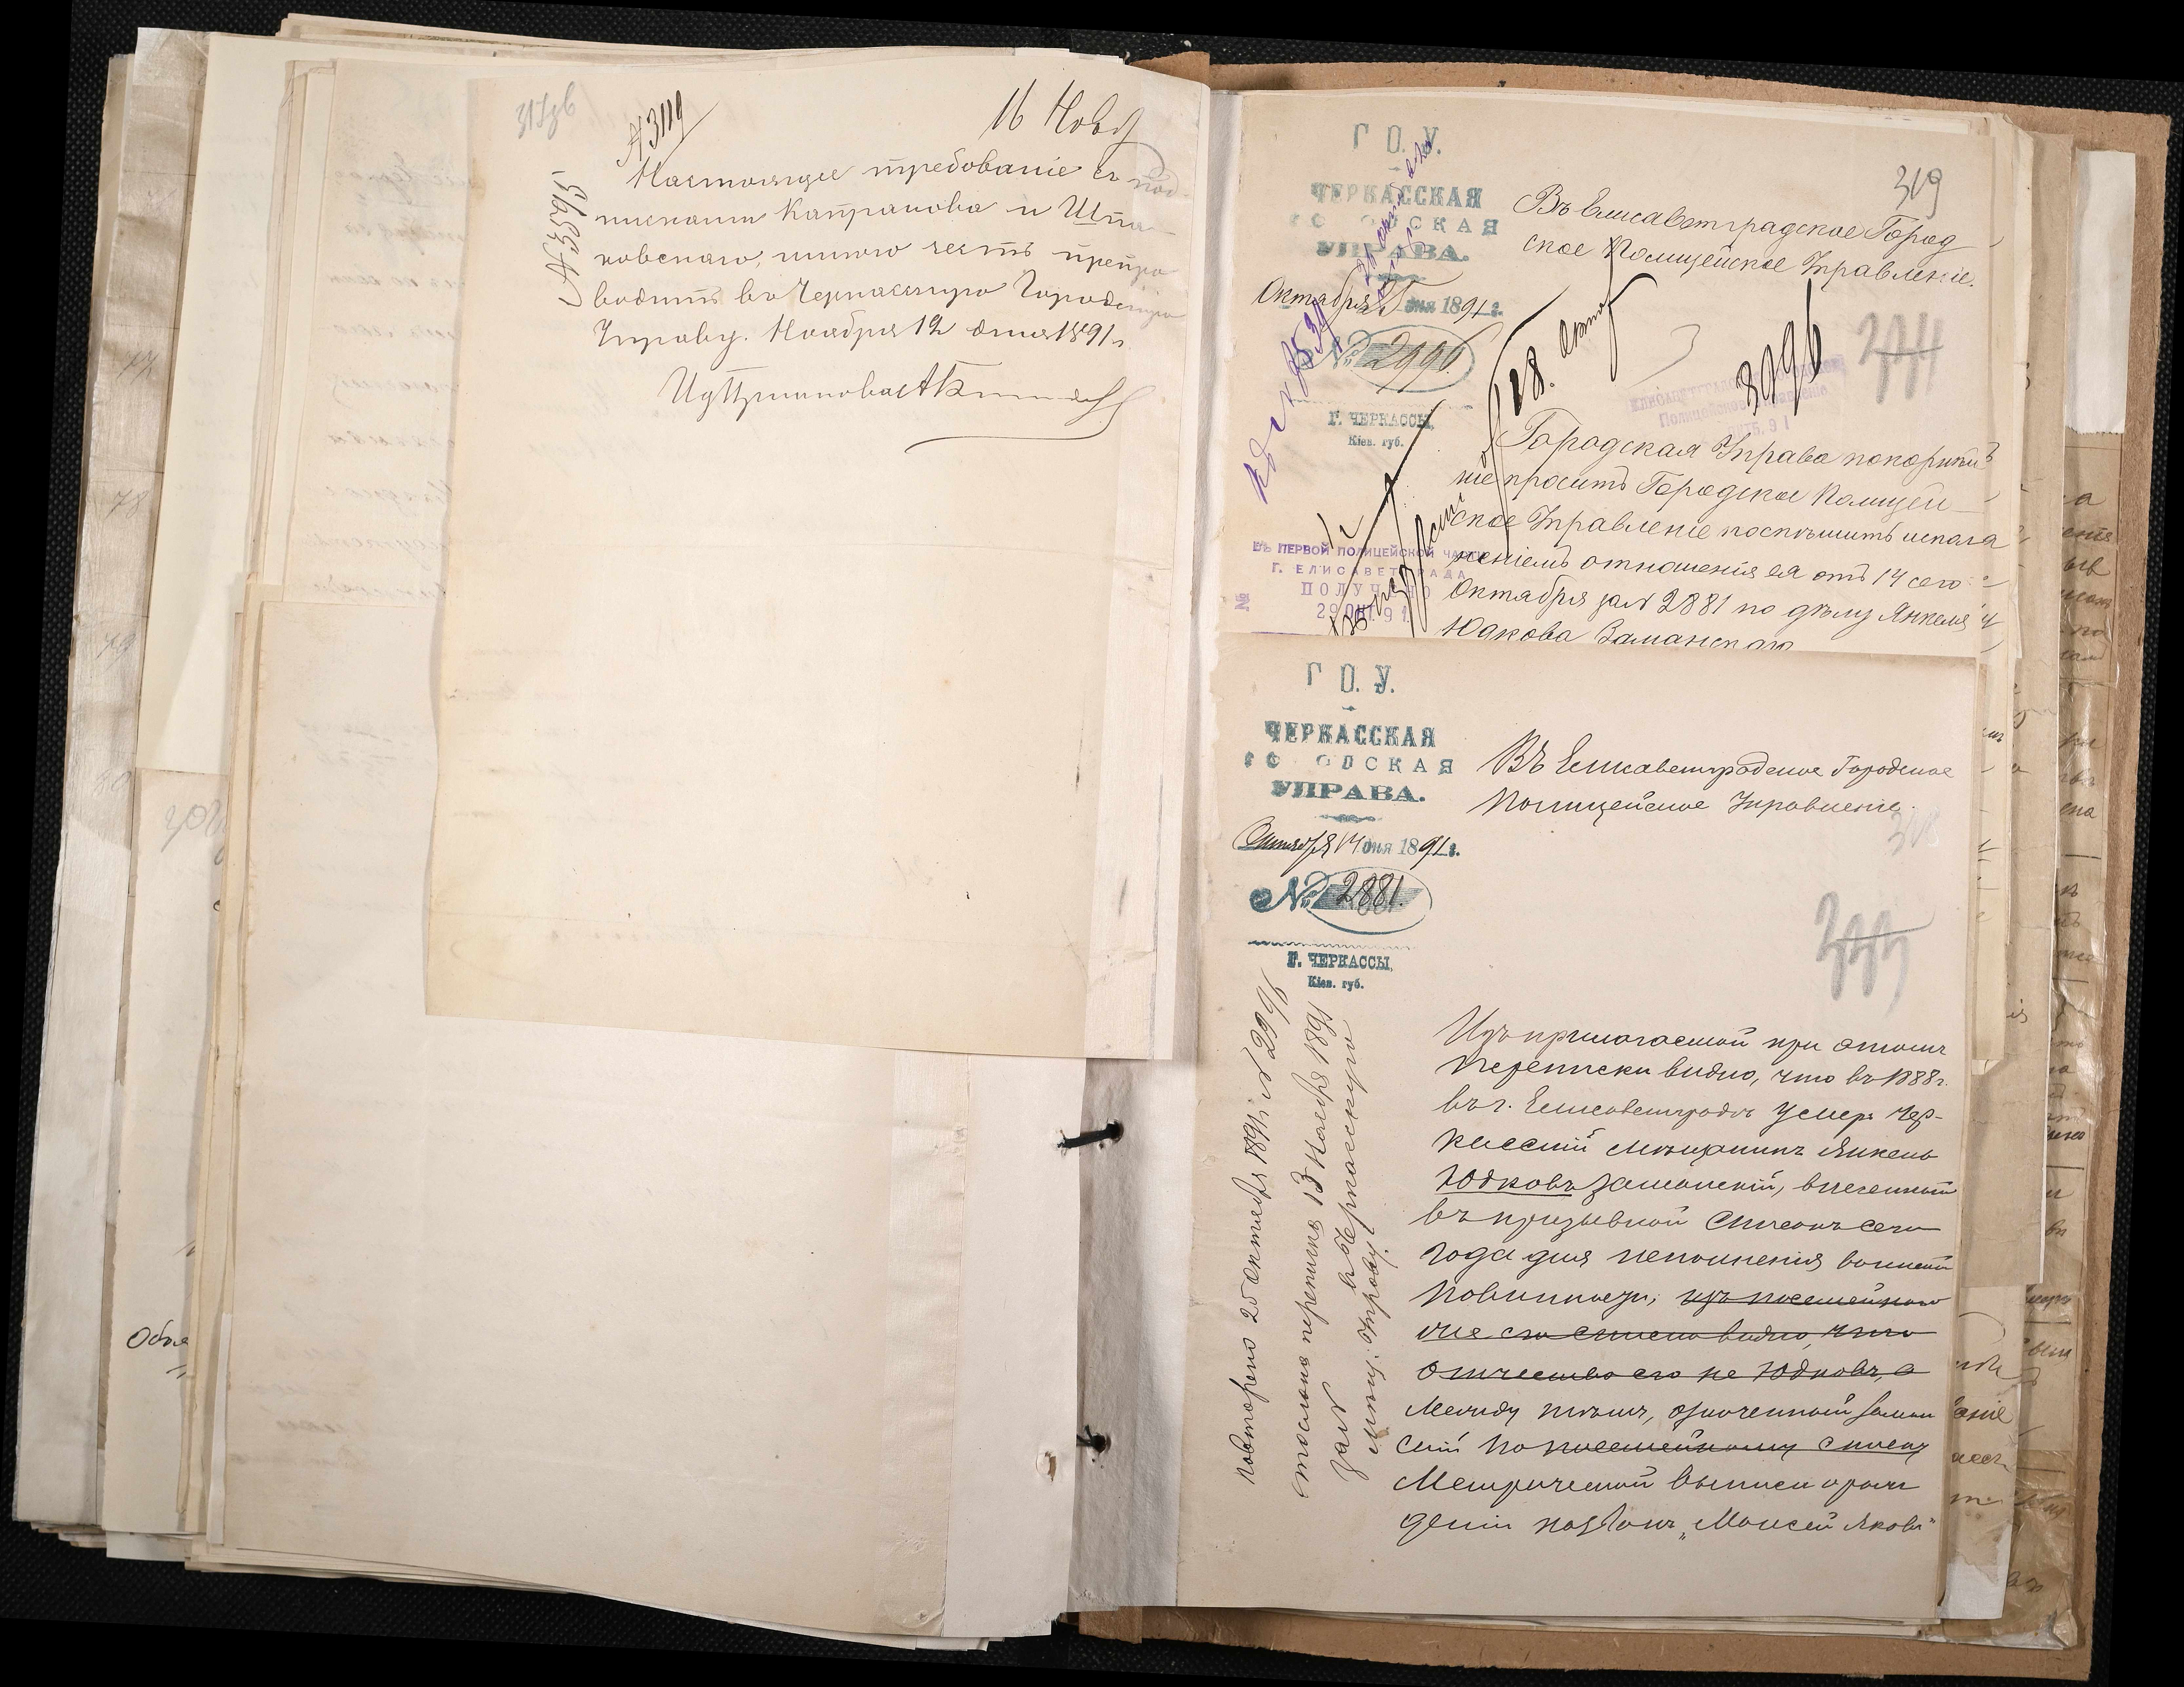 317об
№3119
16 Нояб
№3595
Настоящее требованіе съ под-
писками Капранова и Шпа-
ковскаго, имѣю честь препро
водить въ Черкасскую Городскую
Управу. Ноября 12 дня 1891 г.
319
Г О. У.
ЧЕРКАССКАЯ
УПРАВА.
Октября 25 дня 1891 г.
№ 2996
Г. ЧЕРКАССЫ,
Кіев. губ.
Въ Елисаветградское Город
ское Полицейское Управленіе.
28. Октяб
3096
334
Городская Управа покорнѣй
ше проситъ Городское Полицей-
ское Управленіе поспѣшить испол
неніемъ отношенія ея отъ 14 сего
Октября за № 2881 по дѣлу Янкеля
Юдкова Заманскаго
ВЪ ПЕРВОЙ ПОЛИЦЕЙСКОЙ ЧАСТИ
Г. ЕЛИСАВЕТГРАДА
ПОЛУЧЕНО
29 ОКТ. 91
№
Г О. У.
ЧЕРКАССКАЯ
ГОРОДСКАЯ
УПРАВА.
Октября 14 дня 1891 г.
№ 2881.
Г. ЧЕРКАССЫ,
Кіев. губ.
Въ Елисаветградское Городское
Полицейское Управленіе.
318
333
Изъ прилагаемой при этомъ
переписки видно, что въ 1888 г.
въ г. Елисаветградѣ умеръ Чер-
касскій мѣщанинъ Янкель
Юдковъ Заманскій, внесенный
въ призывной списокъ сего
года для исполненія воинской
повинности; изъ посемейнаго
же его списка видно, что
отчество его не Юдковъ, а
Между тѣмъ, означенный Заман
скій по посемейному списку
Метрической выписи о рож
деніи названъ „Моисей Яковъ"
Повторено 25 октября 1891 г. № 2996
отослана переписка 13 Ноября 1891
за № въ Черкасскую
Мѣщ. Управу.